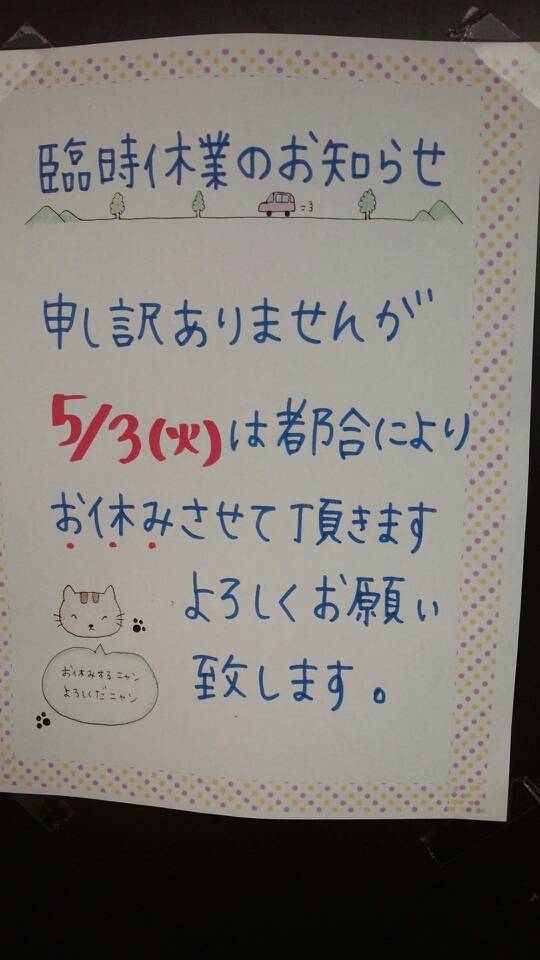 臨時休業のお知らせ
=3
申し訳ありませんが
5/3(火)は都合により
お休みさせて頂きます
よろしくお願い
致します。
お休みするニャン
よろしくだニャン